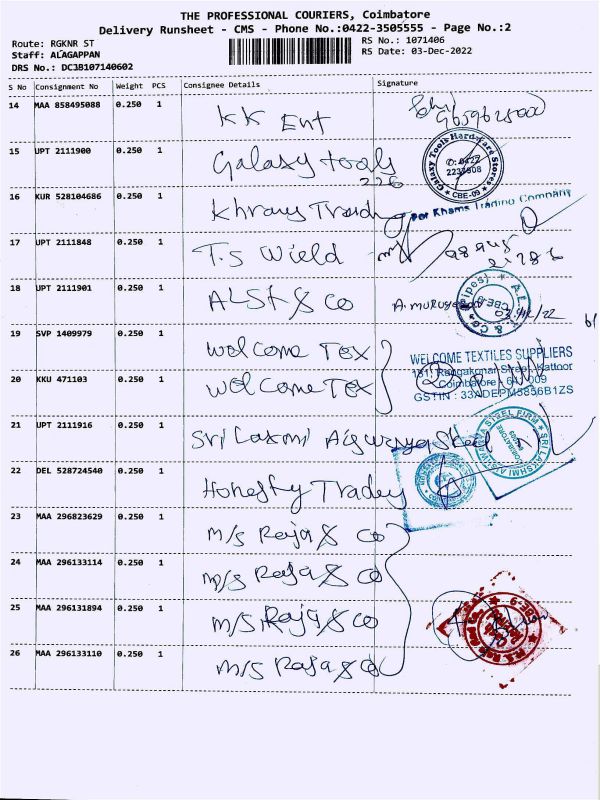 THE PROFESSIONAL COURIERS, Coimbatore
Delivery Runsheet - CMS - Phone No.:0422-3505555 - Page No.:2
Route: RGKNR ST
RS No.: 1071406
Staff: ALAGAPPAN
RS Date: 03-Dec-2022
DRS No.: DC3B107140602
S No Consignment No Weight PCS Consignee Details Signature
14 MAA 858495088 0.250 1 KK Ent
15 UPT 2111900 0.250 1 Galaxy tools
226
Galaxy Tools Hardware Stores
0422
CBE-09
16 KUR 528104686 0.250 1 Trading
For Khams Trading Company
17 UPT 2111848 0.250 1 T.S Wield
18 UPT 2111901 0.250 1 ALST & Co
19 SVP 1409979 0.250 1 Welcome Tex
WELCOME TEXTILES SUPPLIERS
20 KKU 471103 0.250 1 Welcome Tex
Rengakonar Street, Kattoor
Coimbatore - 641 009
GSTIN : 33ADEPM5856B1ZS
21 UPT 2111916 0.250 1 Sri Laxmi
SRI LAKSHMI AISWARYA STEEL FIRM
COIMBATORE
22 DEL 528724540 0.250 1 Honesty Trades
23 MAA 296823629 0.250 1 M/S Raja & Co
24 MAA 296133114 0.250 1 M/S Raja & Co
25 MAA 296131894 0.250 1 M/S Raja & Co
26 MAA 296133110 0.250 1 M/S Raja & Co